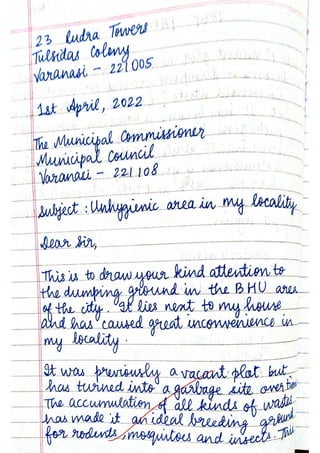 23 Rudra Towers
Tulsidas Colony
Varanasi - 221005
1st April, 2022
The Municipal Commissioner
Municipal Council
Varanasi - 221108
Subject : Unhygienic area in my locality
Dear Sir,
This is to draw your kind attention to
the dumping ground in the BHU area
of the city. It lies next to my house
and has caused great inconvenience in
my locality.
It was previously a vacant plot but
has turned into a garbage site over time
The accumulation of all kinds of wastes
has made it an ideal breeding ground
for rodents, mosquitoes and insects. This